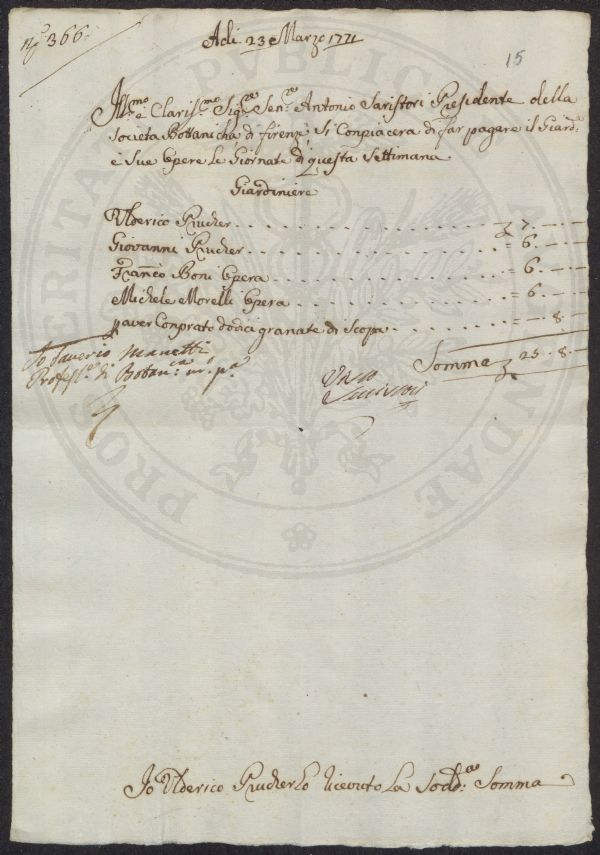 N° 366
Adi 23 Marzo 1771
15
Ill.mo e Claris.mo Sig.re Sen.re Antonio Saristori Presidente della
Societa Bottanicha di firenze Si Conpiacera di far pagare il Giard.e
e Sue Opere Le Giornate di questa Settimana
Giardiniere
Ulderico Prucher 7. —
Giovanni Prucher = 6. — —
Franc.o Boni Opera = 6. — —
Michele Morelli Opera = 6. — —
p aver Conprato dodici granate di Scopa — 8 —
Somma 25. 8. —
Io Saverio Manetti
Profess.e di Botan.ca m. p.a
Visto
PROSPERITATI PUBLICAE AUGENDAE
Io Ulderico Prucher o ricevuto La Sodd.a Somma